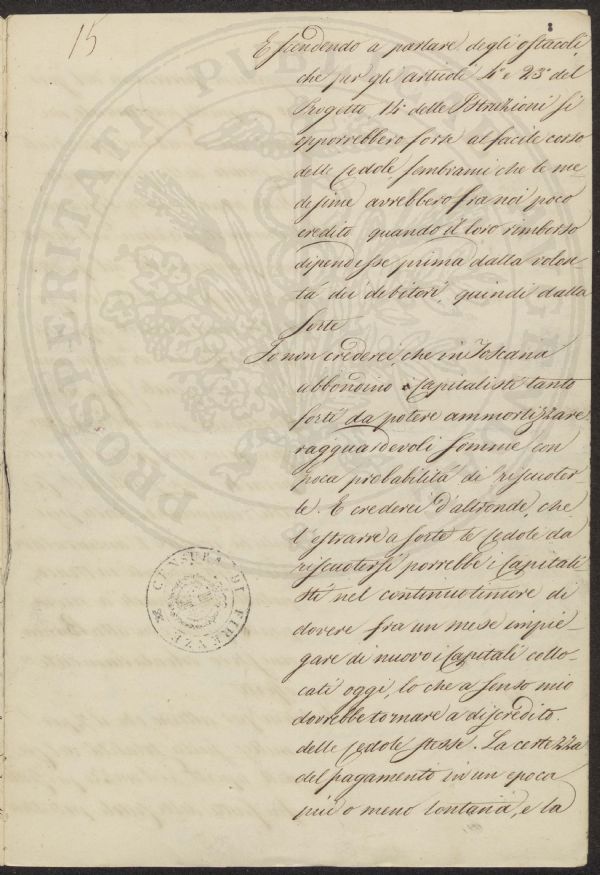 15
8
Escendendo a parlare degli ostacoli,
che per gli articoli 4° e 23° del
Progetto 14 delle Istruzioni si
opporrebbero forse al facile corso
delle Cedole sembrami che le me
desime avrebbero fra noi poco
credito quando il loro rimborso
dipendesse prima dalla volon-
tà dei debitori, quindi dalla
sorte
Io non crederei che in Toscana
abbondino i Capitalisti tanto
forti da potere ammortizzare
ragguardevoli somme con
poca probabilità di riscuoter-
le. E crederei d'altronde, che
l'estrarre a sorte le Cedole da
riscuotersi porrebbe i Capitali
sti nel continuo timore di
dovere fra un mese impie-
gare di nuovo i Capitali collo-
cati oggi, lo che a senso mio
dovrebbe tornare a discredito
delle Cedole stesse. La certezza
del pagamento in un epoca
più o meno lontana, e la
PROSPERITATI PUBL
CENSURA DI FIRENZE